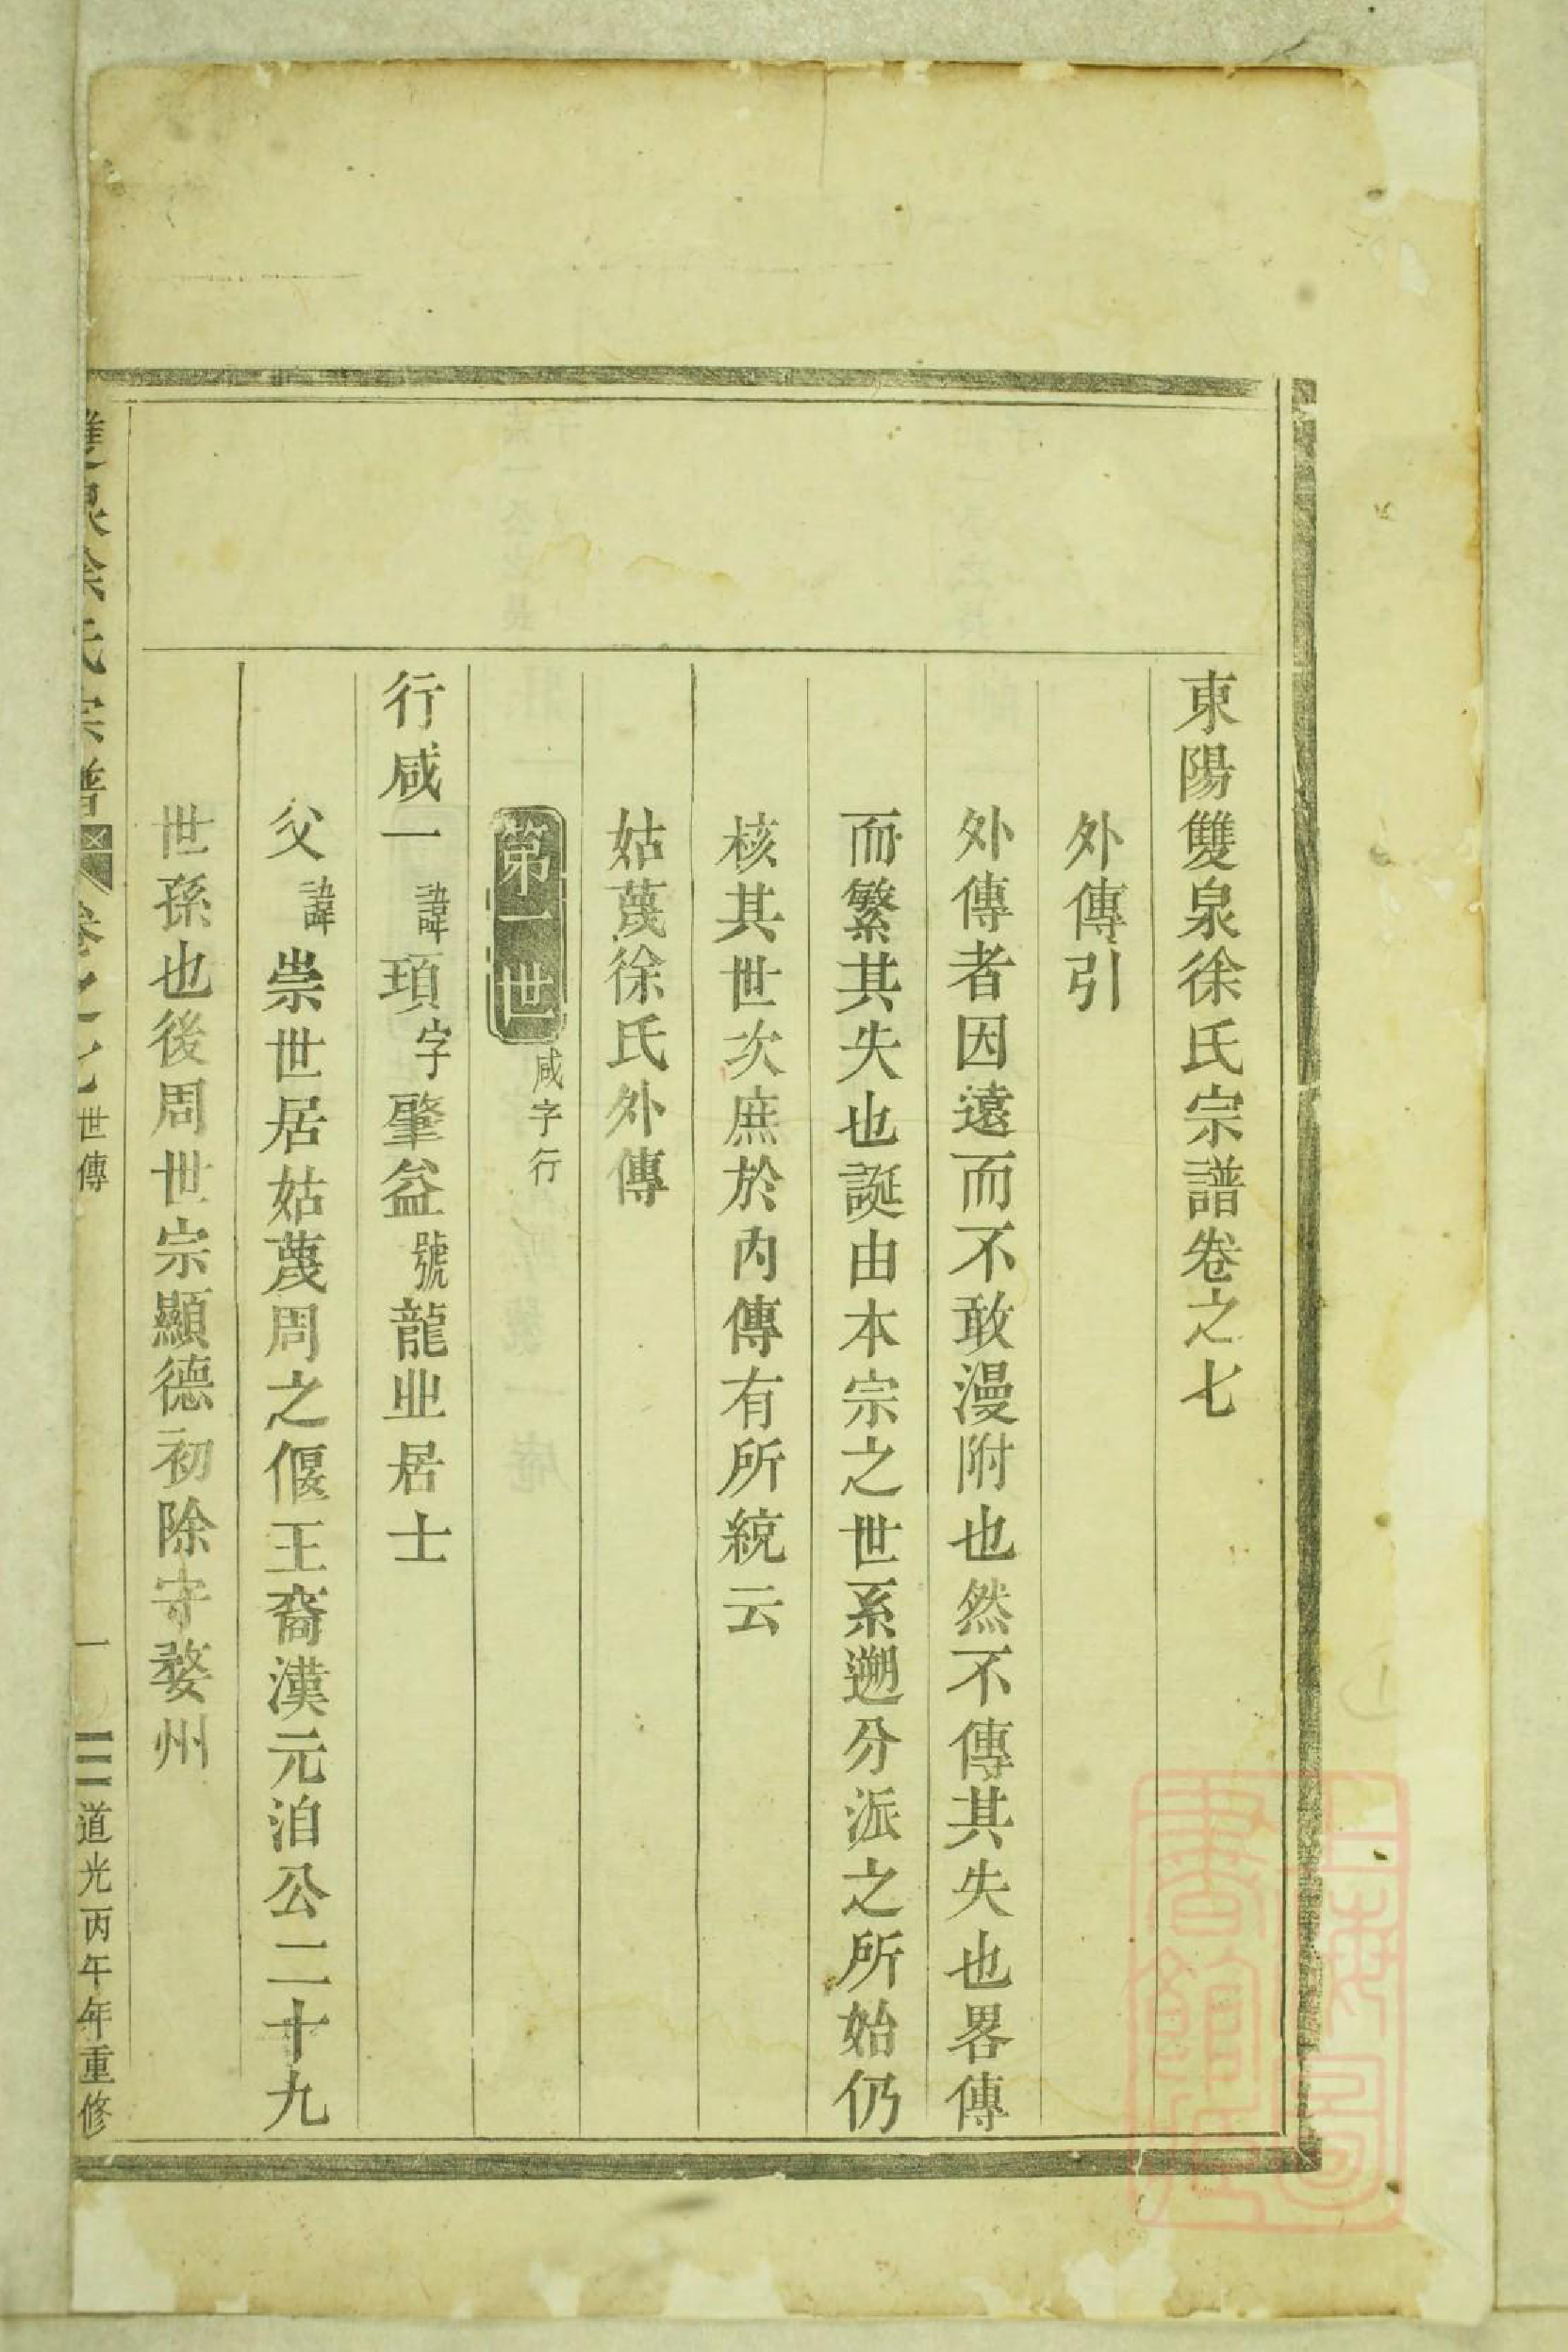 東陽雙泉徐氏宗譜卷之七
外傳引
外傳者因遠而不敢漫附也然不傳其失也畧傳
而繁其失也誕由本宗之世系遡分派之所始仍
核其世次庶於內傳有所統云
姑蔑徐氏外傳
第一世咸字行
行咸一諱頊字肇益號龍业居士
父諱崇世居姑蔑周之偃王裔漢元洎公二十九
世孫也後周世宗顯德初除守婺州
雙泉徐氏宗譜 卷之七 世傳 一 道光丙午年重修
上海圖書館藏